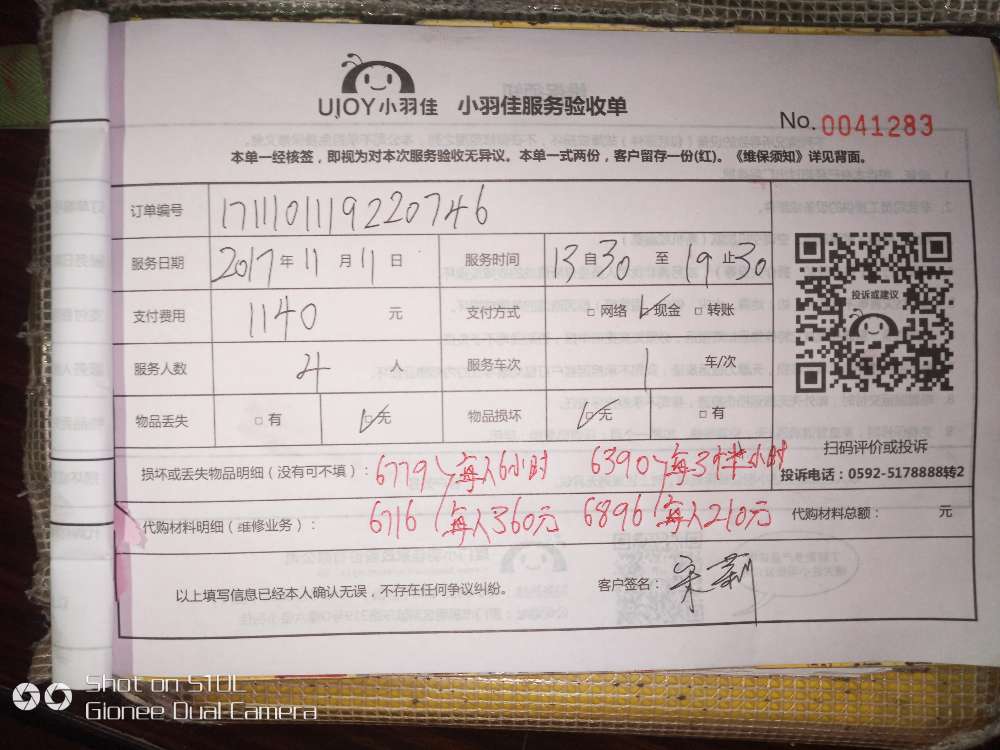 UJOY小羽佳 小羽佳服务验收单
No. 0041283
本单一经核签，即视为对本次服务验收无异议。本单一式两份，客户留存一份(红)。《维保须知》详见背面。
订单编号 171110119220746
服务日期 2017年11月11日 服务时间 13自30至19止30
支付费用 1140 元 支付方式 □网络 ☑现金 □转账
投诉或建议
服务人数 4 人 服务车次 1 车/次
物品丢失 □有 ☑无 物品损坏 ☑无 □有
扫码评价或投诉
损坏或丢失物品明细（没有可不填）：6779 每人6小时 6390 每3 小时
投诉电话：0592-5178888转2
代购材料明细（维修业务）： 6716 每人360元 6896 每人210元 代购材料总额： 元
以上填写信息已经本人确认无误，不存在任何争议纠纷。 客户签名：宋莉
Shot on S10L
Gionee Dual Camera